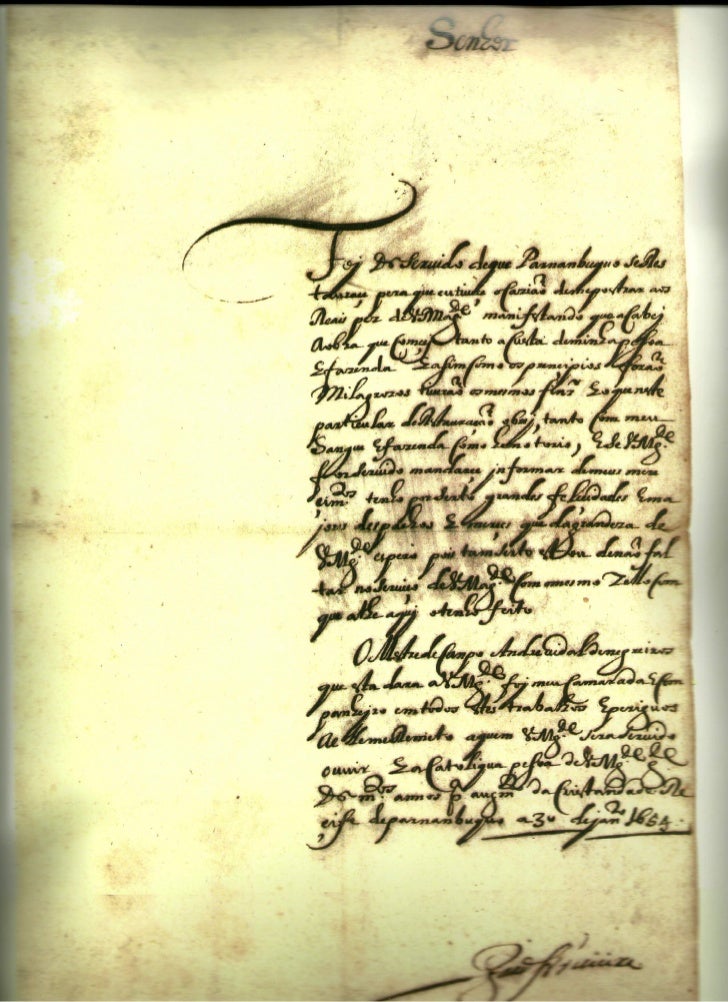 Senhor
Foj Ds seruido de que Parnanbuquo se Res
taurau pera que eu tiuese ocazião de me postrar aos
Reais pez de V Magde manifestando que acabej
a obra que comecej tanto a custa de minha pesoa
E fazenda E asim como os principios forão
Milagrozos tiuerão os mesmos fins E o que neste
particular de Restauração obrej, tanto com meu
Sangue E fazenda como he notorio, E se V Mgde
for seruido mandarse informar de meus mere
cimtos tenho por serto grandes felicidades E ma
jores despachos E merces que da grandeza de
V Mgde espero pois tam serto estou de não fal
tar no seruiço de V Magde Com o mesmo Zello Com
que athe aqui o tenho feito
O Mestre de Canpo Andre Vidal de negreiros
que esta dara a V Mgde foj meu Camarada E Com
panheiro em todos estes trabalhos E periguos
a quem V Mgde sera seruido
ouuir E a Catoliqua pesoa de V Mgde gde
Ds ms annos pa augmto da Cristandade Re
cife de parnanbuquo a 30 de janro 1654